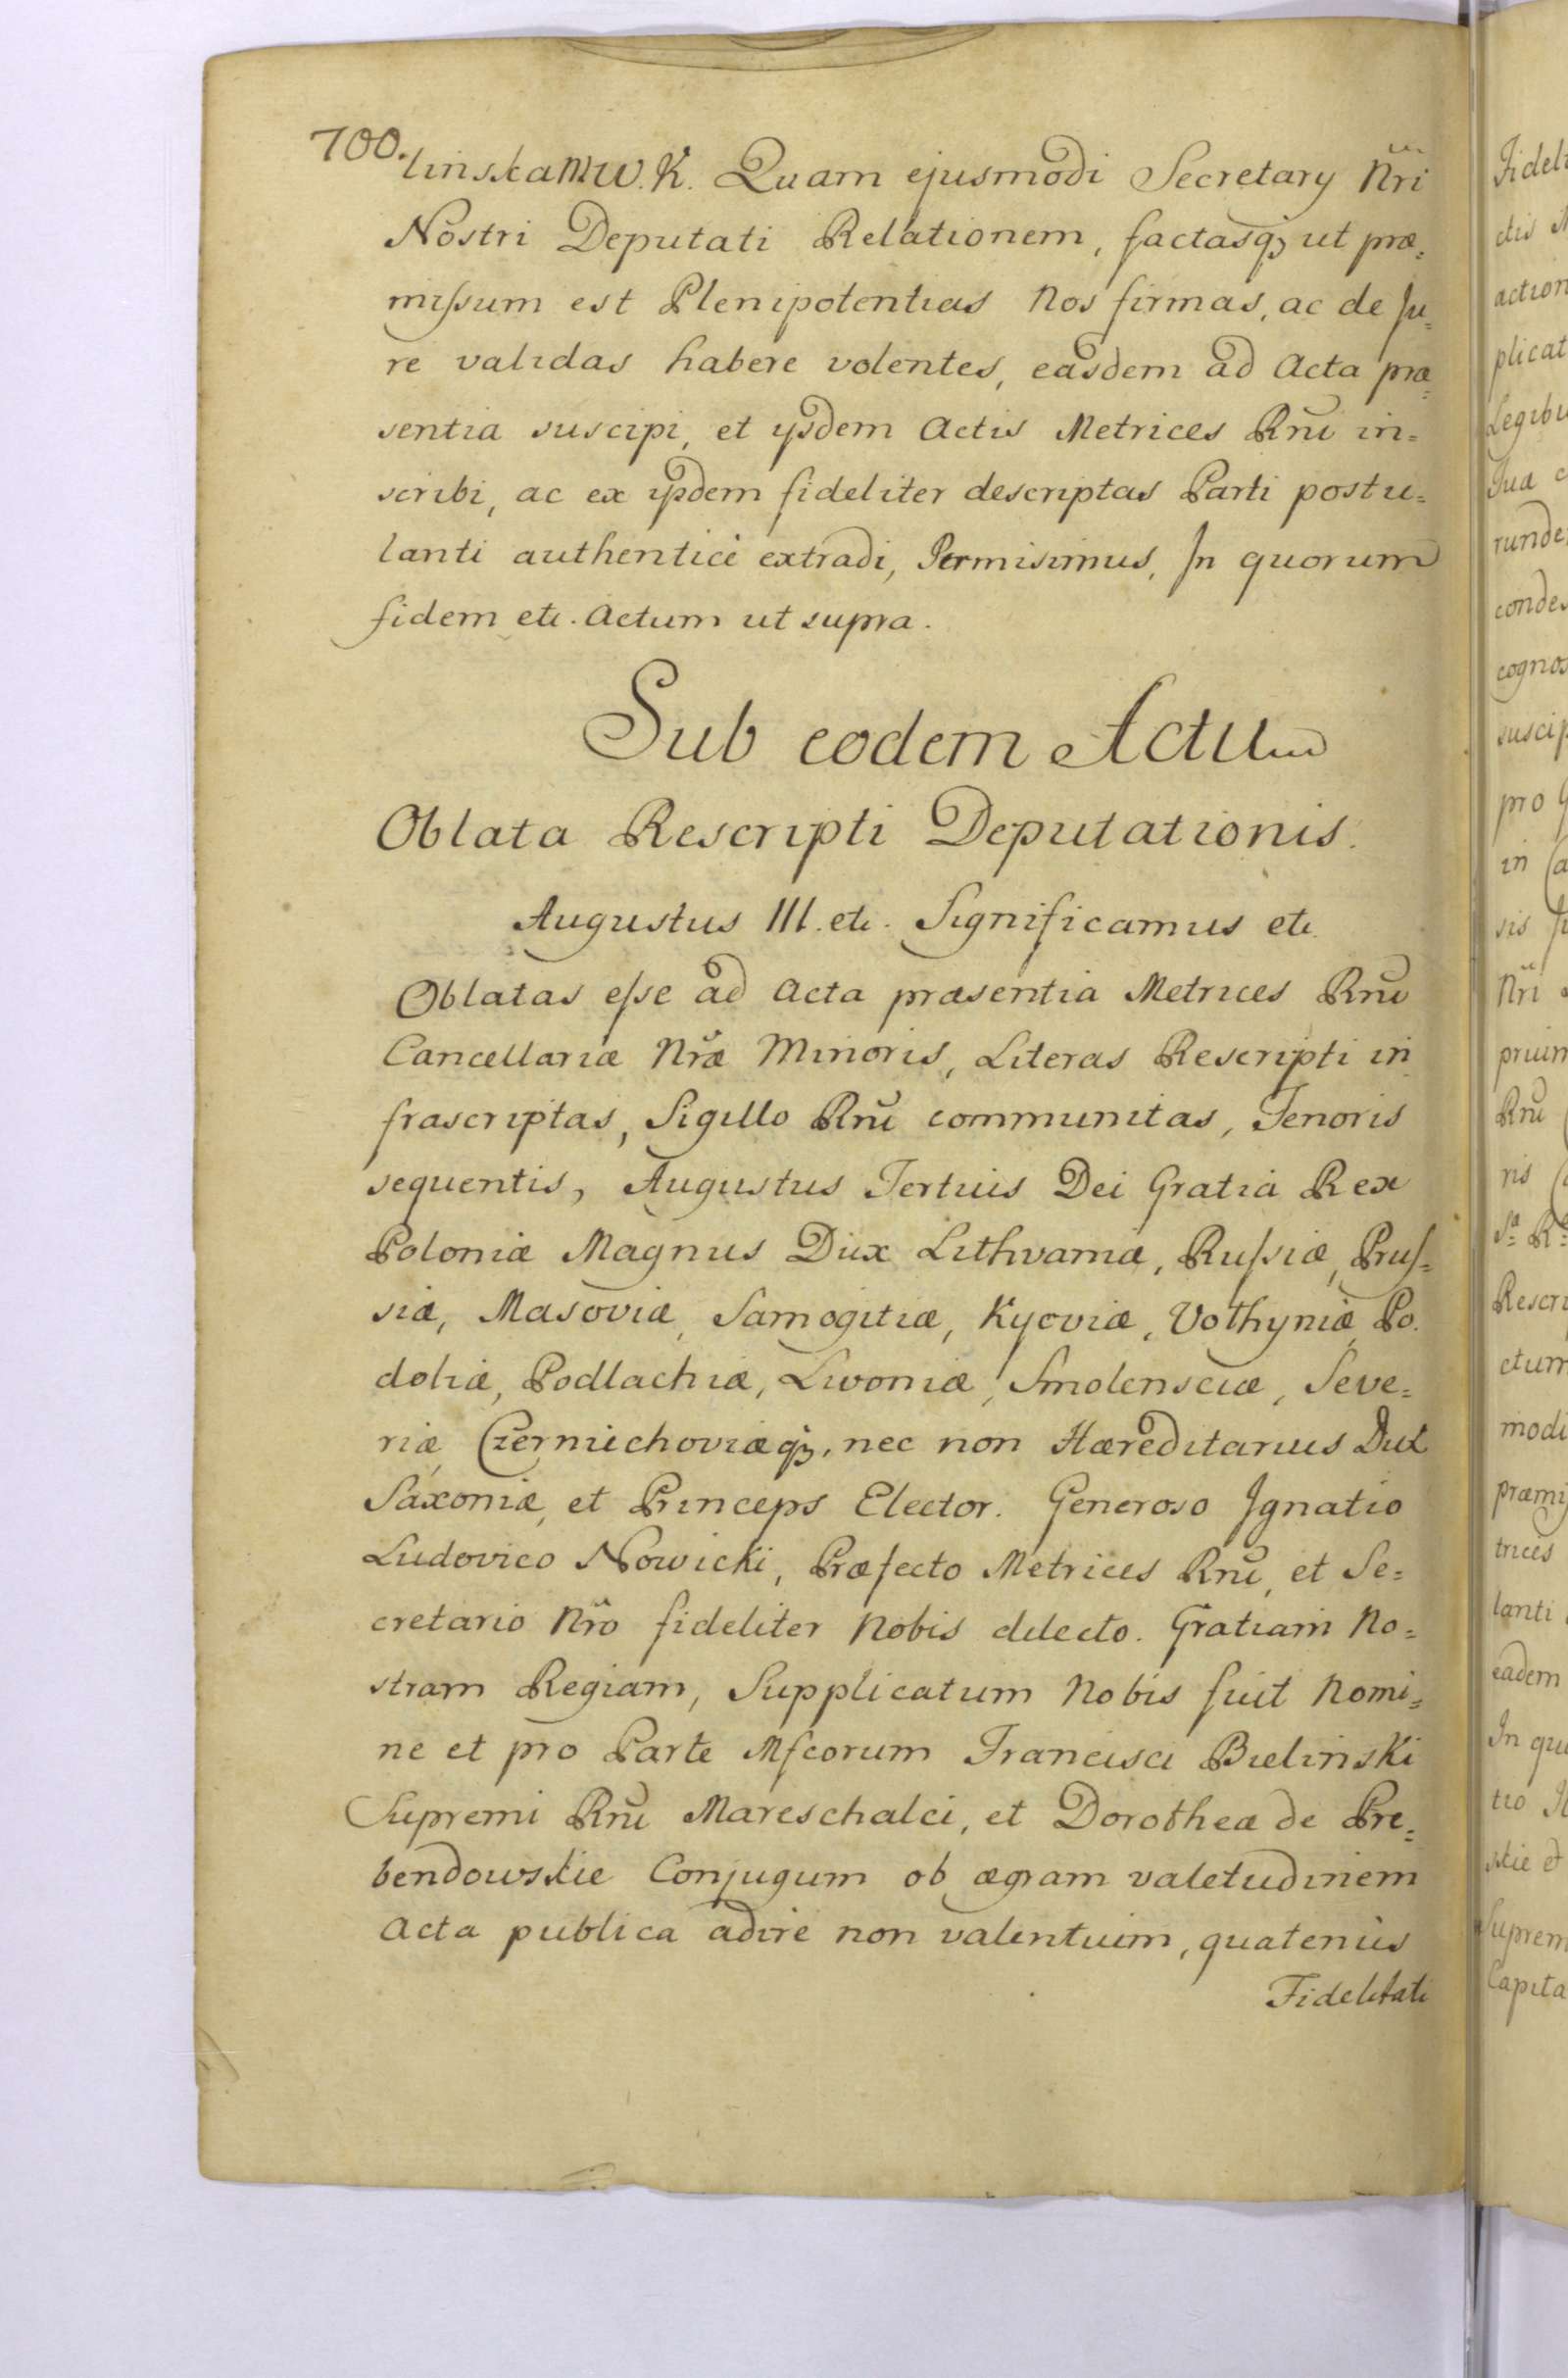 700.
linska M.W.K. Quam ejusmodi Secretarÿ Nr̃i
Nostri Deputati Relationem, factasq₃ ut præ=
missum est Plenipotentias Nos firmas, ac de Ju=
re validas habere volentes, easdem ad Acta præ=
sentia suscipi, et ÿsdem Actis Metrices Rñi in=
scribi, ac ex ÿsdem fideliter descriptas Parti postu=
lanti authenticè extradi, Permisimus, In quorum
fidem etc. Actum ut supra.
Sub eodem Actu
Oblata Rescripti Deputationis.
Augustus III. etc. Significamus etc.
Oblatas esse ad Acta præsentia Metrices Rñi
Cancellariæ Nr̃æ Minoris, Literas Rescripti in
frascriptas, Sigillo Rñi communitas, Tenoris
sequentis, Augustus Tertius Dei Gratia Rex
Poloniæ Magnus Dux Lithvaniæ, Russiæ, Prus=
siæ, Masoviæ, Samogitiæ, Kyoviæ, Volhyniæ, Po.
doliæ, Podlachiæ, Livoniæ, Smolensciæ, Seve=
riæ, Czerniechoviæq₃, nec non Hæreditarius Dux
Saxoniæ, et Princeps Elector. Generoso Ignatio
Ludovico Nowicki, Præfecto Metrices Rñi, et Se=
cretario Nr̃o fideliter Nobis dilecto. Gratiam No=
stram Regiam, Supplicatum Nobis fuit Nomi=
ne et pro Parte Mfcorum Francisci Bielinski
Supremi Rñi Mareschalci, et Dorotheæ de Pre=
bendowskie Conjugum ob ægram valetudinem
Acta publica adire non valentium, quatenus
Fidelitati